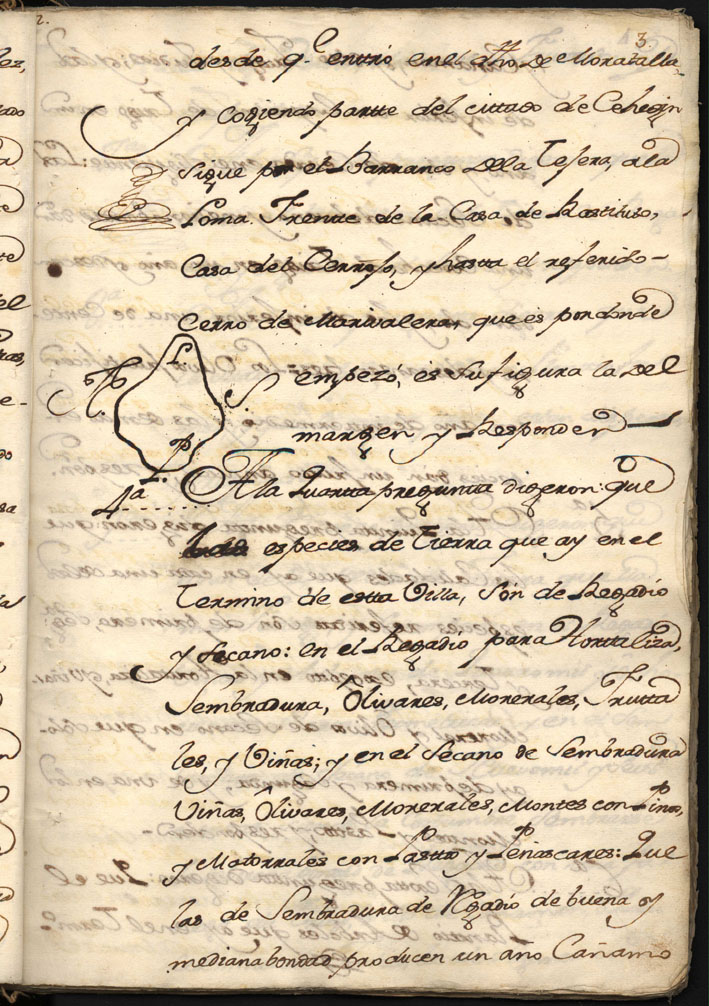 2.
3.
desde q.e entrò en el dho de Moratalla
y cogiendo partte del cittado de Cehegin
sigue por el Barranco della Tesera, ala
Loma Frente de la Casa de Rostituto,
Casa del Cerrojo, y hasta el referido
Cerro de Marivalera, que es por donde
empezò, es su figura la del
L.
P.
margen y Responden
4ª A la Quarta pregunta digeron: que
las especies de Tierra que ay en el
Termino de esta Villa, són de Regadìo
y Secano: en el Regadìo para Hortaliza,
Sembradura, Olivares, Morerales, Frutta
les, y Viñas; y en el Secano de Sembradura
Viñas, Olivares, Morerales, Montes con Pinos,
y Matorrales con Pastto y Peñascares: Que
las de Sembradura de Regadìo de buena y
mediana bondad producen un año Cañamo